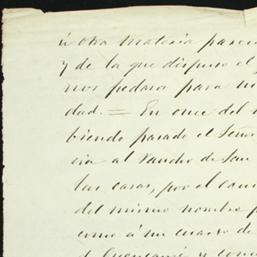 ú otra materia pareci
y de la que dispuso el S
nos pedazos para no
dad. = En once del m
biendo pasado el Señor
cia al Rancho de San
las casas, por el cami
del mismo nombre p
como á un cuarto de